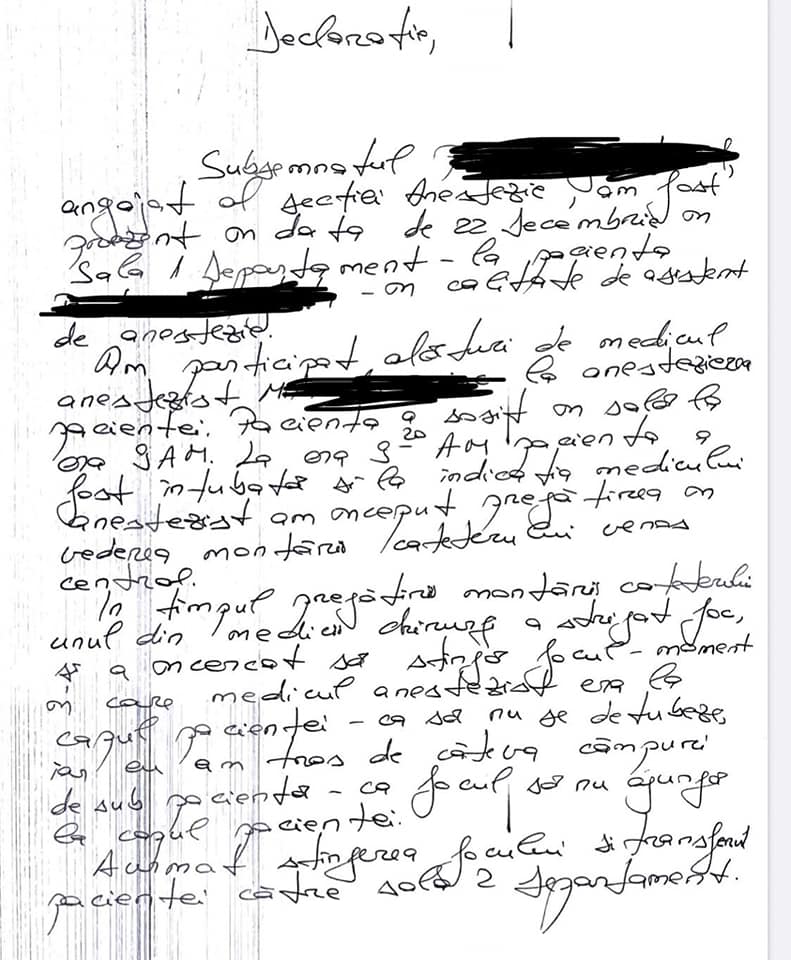 Declarație,
Subsemnatul
angajat al secției Anestezie, am fost
prezent în data de 22 decembrie în
Sala 1 Departament - la pacienta
- în calitate de asistent
de anestezie.
Am participat alături de medicul
anestezist M la anestezierea
pacientei. Pacienta a sosit în sală la
ora 9 AM. La ora 9 20 AM pacienta a
fost intubată și la indicația medicului
anestezist am început pregătirea în
vederea montării cateterului venos
central.
În timpul pregătirii montării cateterului
unul din medicii chirurgi a strigat foc,
și a încercat să stingă focul - moment
în care medicul anestezist era la
capul pacientei - ca să nu se detubeze,
iar eu am tras de câteva câmpuri
de sub pacientă - ca focul să nu ajungă
la capul pacientei.
A urmat stingerea focului și transferul
pacientei către sala 2 departament.